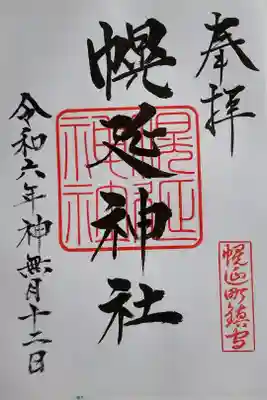 奉拝
幌延神社
幌延神社
幌延町鎮守
令和六年神無月十二日